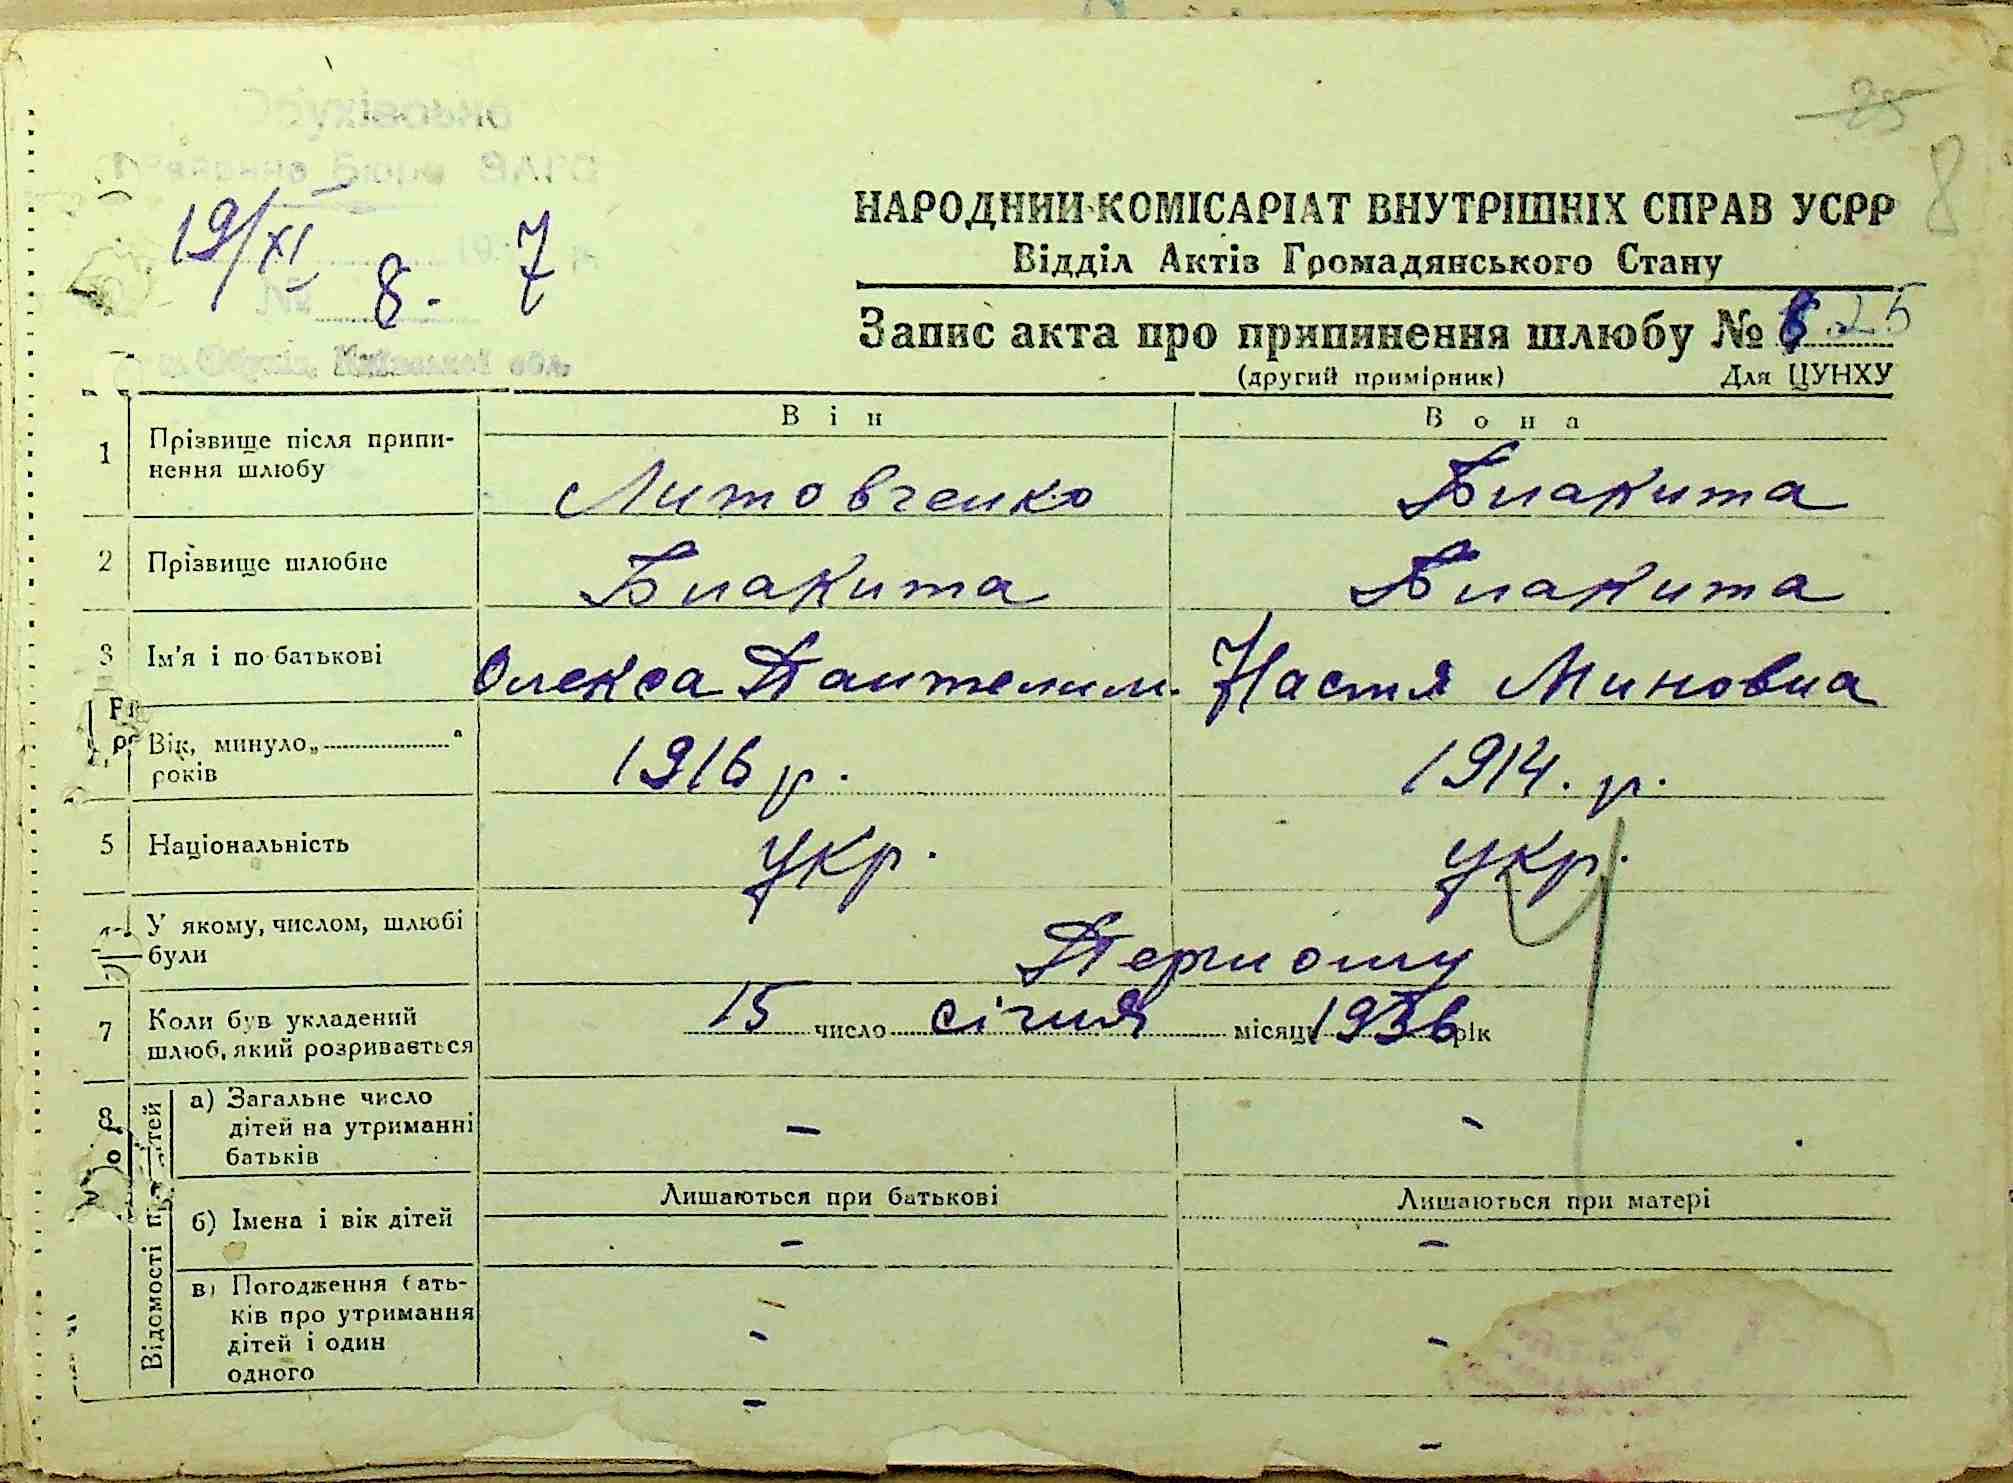 85
8
19/XI
8. 7
№
м. Обухів, Київської обл.
НАРОДНИЙ КОМІСАРІАТ ВНУТРІШНІХ СПРАВ УСРР
Відділ Актів Громадянського Стану
Запис акта про припинення шлюбу № 25
(другий примірник) Для ЦУНХУ
Він Вона
1 Прізвище після припи-
нення шлюбу
Литовченко Блакита
2 Прізвище шлюбне Блакита Блакита
3 Ім'я і по-батькові Олекса Пантелим. Настя Миновна
Вік, минуло „ “
років
1916 р. 1914. р.
5 Національність укр. укр.
У якому, числом, шлюбі
були
Першому
7 Коли був укладений
шлюб, який розривається
15 число січня місяць 1936 рік
8 Відомості про дітей
а) Загальне число
дітей на утриманні
батьків
– –
Лишаються при батькові Лишаються при матері
б) Імена і вік дітей
– –
в) Погодження бать-
ків про утримання
дітей і один
одного
– –
– –